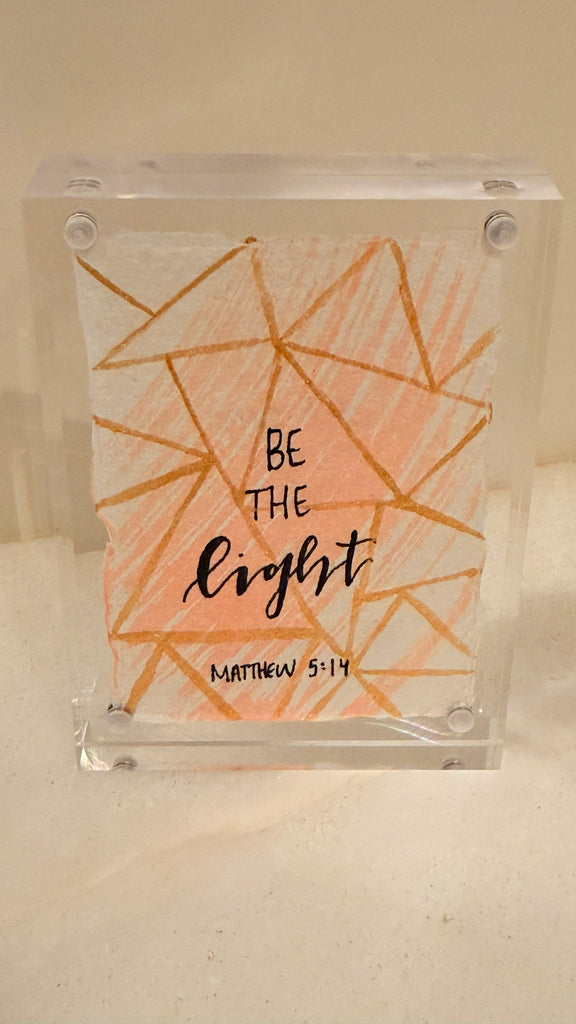 BE
THE
light
MATTHEW 5:14